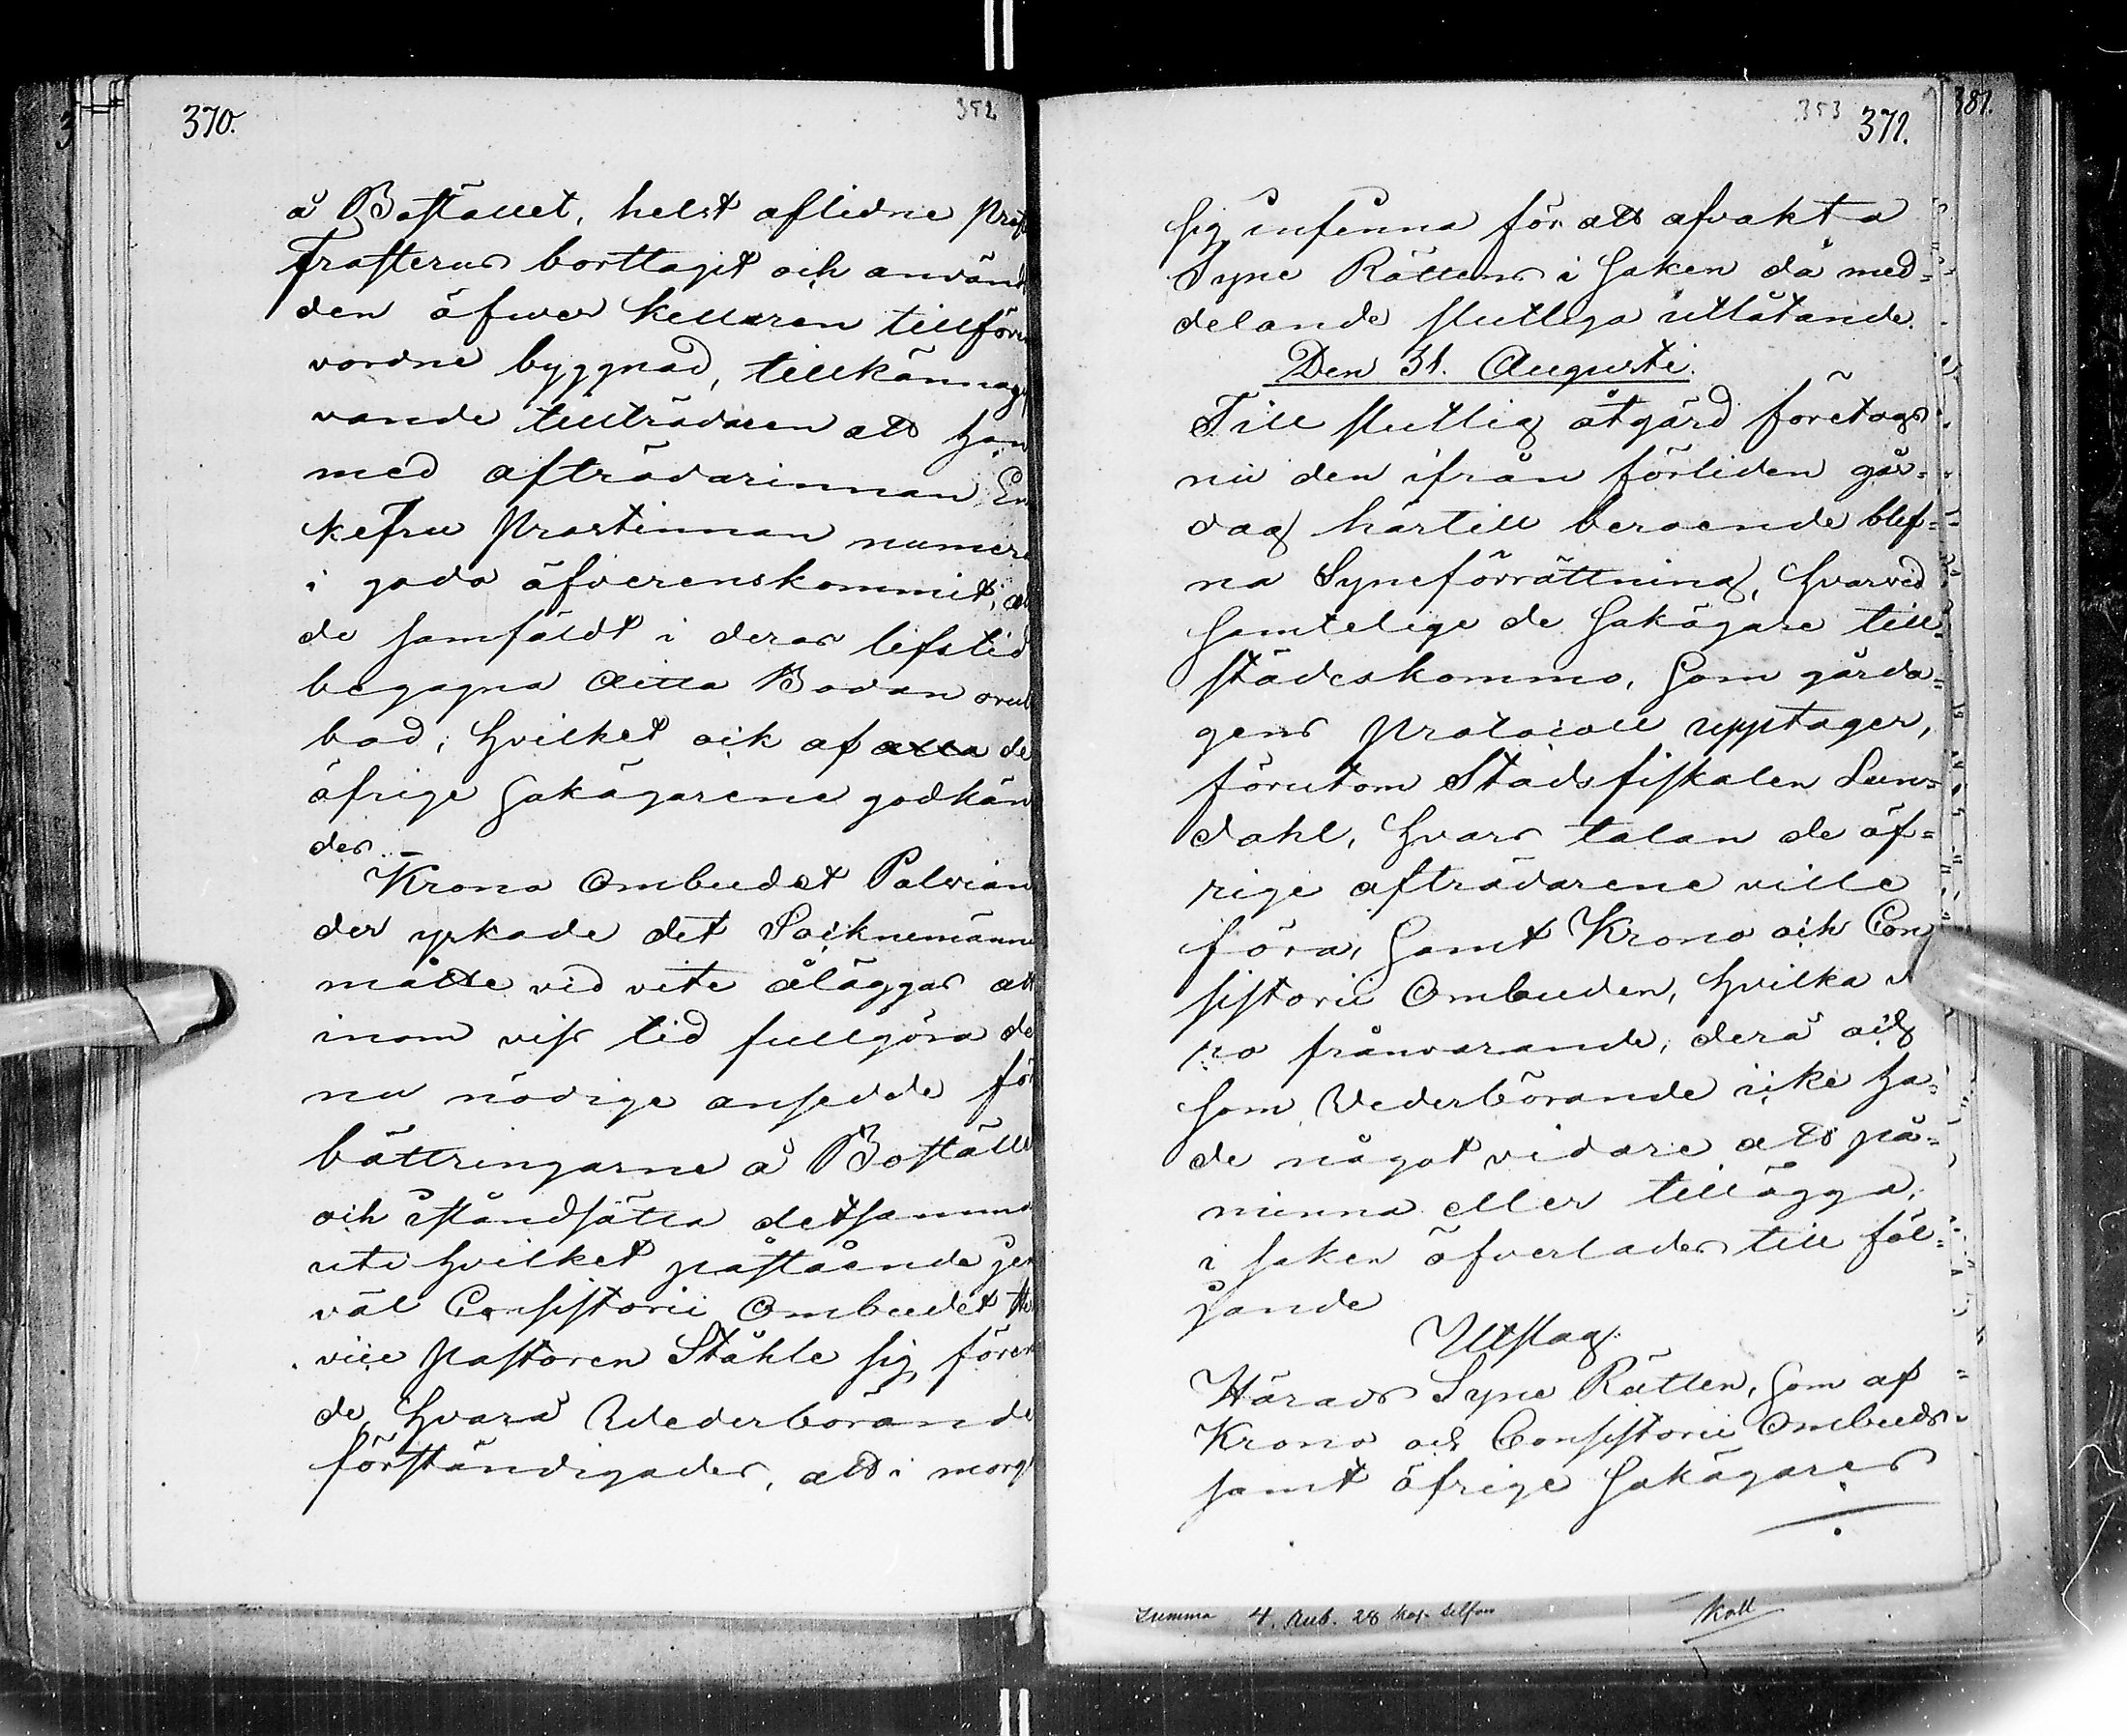 370.
352
å Bostället, helst aflidne Pros
Frosterus borttagit och använd
den öfwer källaren tillföre
vordne byggnad, tillkännagif
vande tillträdaren att han
med afträdarinnan En
kefru Prostinnan numera
i godo öfverenskommit, att
de samfäldt i deras lifstid
begagna denna Bodan orub
bad; hvilket ock af alla de
öfrige Sakägarene godkän
des.
Krono Ombudet Palvian
der yrkade det Socknemänne
måtte vid vite åläggas att
inom viss tid fullgöra de
nu nödige ansedde för
bättringarne å Boställe
och iståndsätta detsamma
uti hvilket påstående jem
väl Consistorii Ombudet
vice Pastoren Ståhle sig fören
de, hvarå Wederbörande
förständigades, att i morg
353
371.
381.
sig infinna för att afvakta
Syne Rättens i saken då med=
delande slutliga utlåtande.
Den 31. Augusti.
Till slutlig åtgärd företogs
nu den ifrån förliden går=
dag härtill beroende blef=
na Syneförrättning, hvarvid
samtelige de sakägare till=
städeskommo, som gårda=
gens Protocoll upptager,
förutom Stadsfiskalen Sun=
dahl, hvars talan de öf=
rige afträdarene ville
föra, samt Krono och Con
sistorii Ombuden, hvilka v
ro frånvarande, derå och
som Wederbörande icke ha=
de något vidare att på=
minna eller tillägga,
i saken öfverlades till föl=
jande
Utslag.
Härads Syne Rätten, som af
Krono och Consistorii Ombuds
samt öfrige Sakägares
Summa 4. Rub. 28 kop. Silfver
Koll